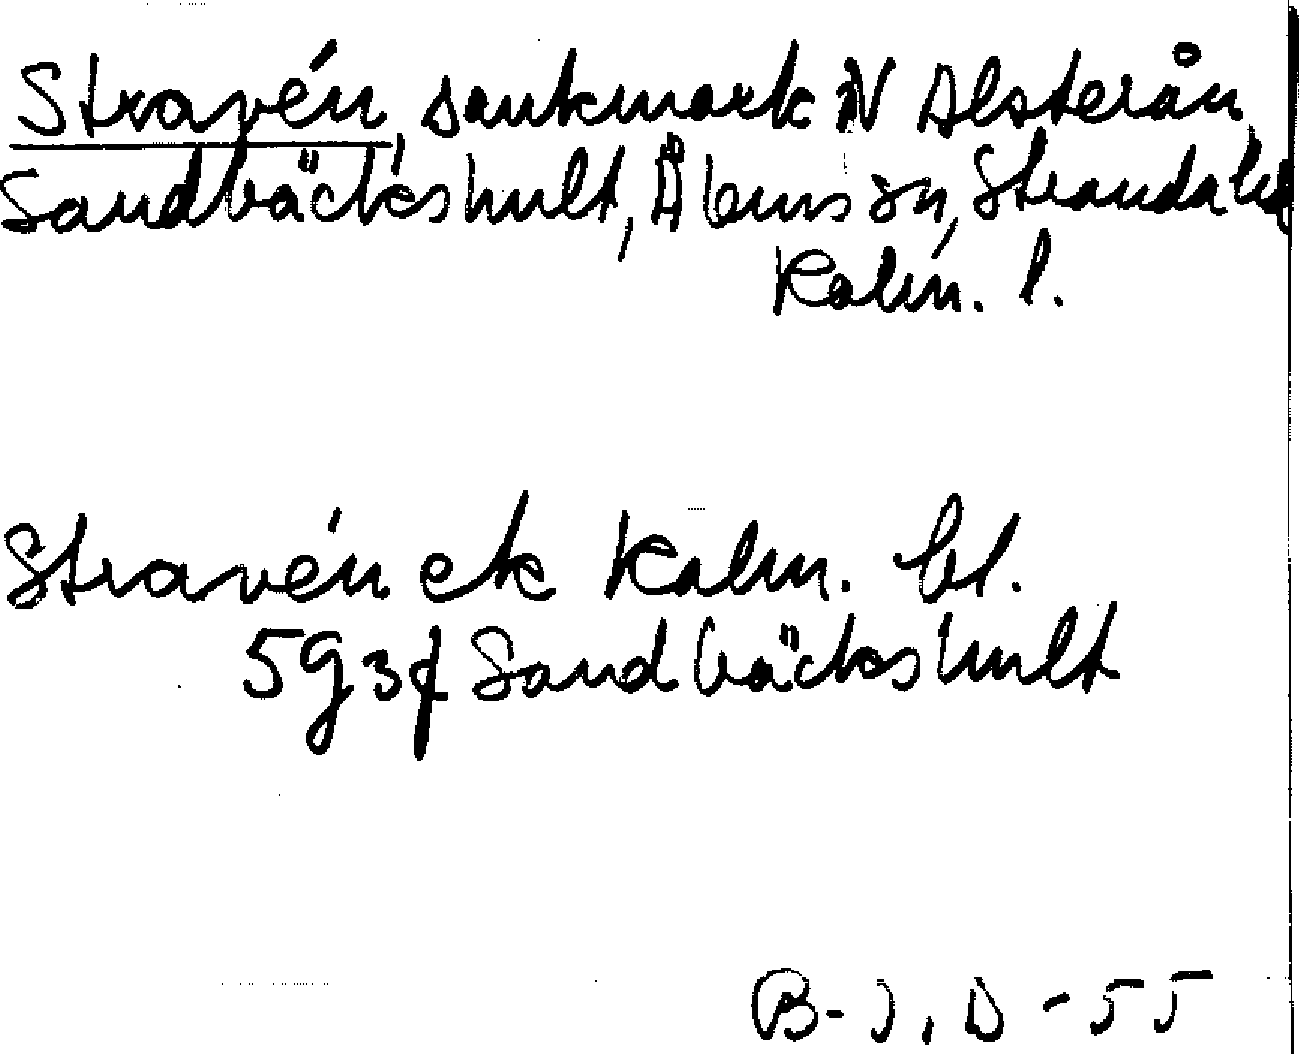 Stravén, sankmark N Alsterån,
Sandbäckshult, Ålems sn, Stranda hd
Kalm. l.
Stravén ek Kalm. bl.
5g3f Sandbäckshult
B-J. D -55